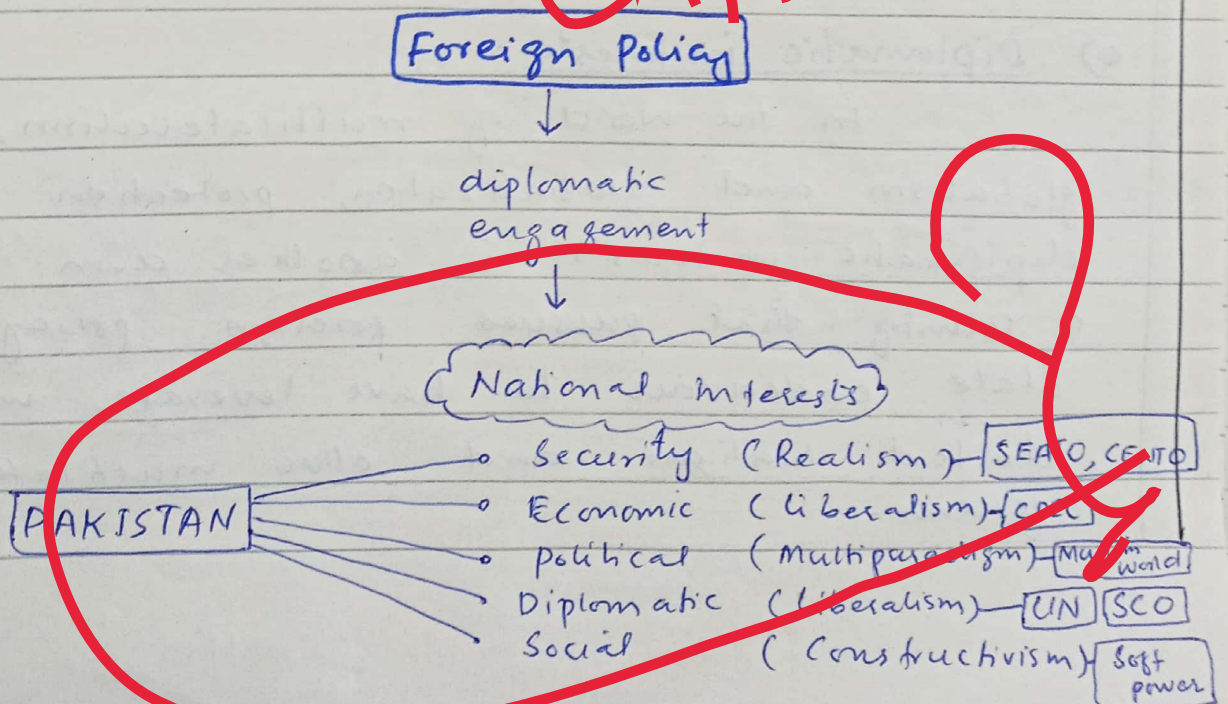 Foreign Policy
diplomatic
engagement
National interests
Security (Realism) SEATO, CENTO
PAKISTAN
Economic (liberalism) CPEC
Political (Multiparadigm) world
Diplomatic (liberalism) UN SCO
Social (Constructivism) Soft
power